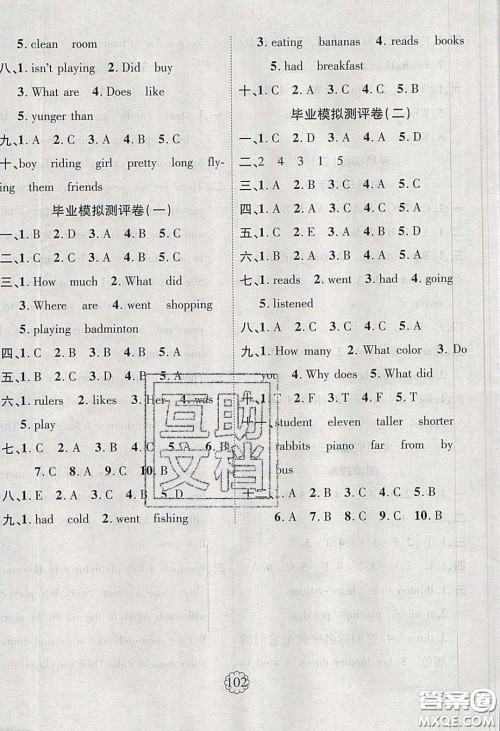 5. clean room
八、1. isn't playing 2. Did buy
3. What are 4. Does like
5. yunger than
九、1. A 2. C 3. A 4. B 5. C
十、boy riding girl pretty long fly-
ing them friends
毕业模拟测评卷(一)
一、1. B 2. D 3. A 4. B 5. A
二、1. B 2. D 3. C 4. B 5. C
三、1. How much 2. What did
3. Where are 4. went shopping
5. playing badminton
四、1. C 2. D 3. B 4. C 5. A
五、1. D 2. B 3. A
六、1. rulers 2. likes 3. Her 4. was
5. play
七、1. C 2. B 5. A 6. B
7. B 8. C 9. C 10. B
八、1. E 2. A 3. C 4. B 5. D
九、1. had cold 2. went fishing
3. eating bananas 4. reads books
5. had breakfast
十、1. C 2. A 3. C 4. C 5. B
毕业模拟测评卷(二)
一、1. C 2. B 3. D 4. A 5. B
二、2 4 3 1 5
三、1. C 2. A 3. B 4. D 5. B
四、1. A 2. C 3. A 4. A 5. C
五、1. D 2. C 3. B 4. A 5. C
六、1. B 2. A 3. B 4. B 5. A
七、1. reads 2. went 3. had 4. going
5. listened
八、1. C 2. C 3. A 4. C 5. A
九、1. How many 2. What color 3. Do
you 4. Why 5. What does
十、1. T 2. F 3. T 4. F 5. T
十一、student eleven taller shorter
rabbits piano far from by
bus
十二、1. C 2. B 3. A 4. C 5. B
6. A 7. A 8. C 9. C 10. B
互助
文档
102
答案圈
MXQE.COM